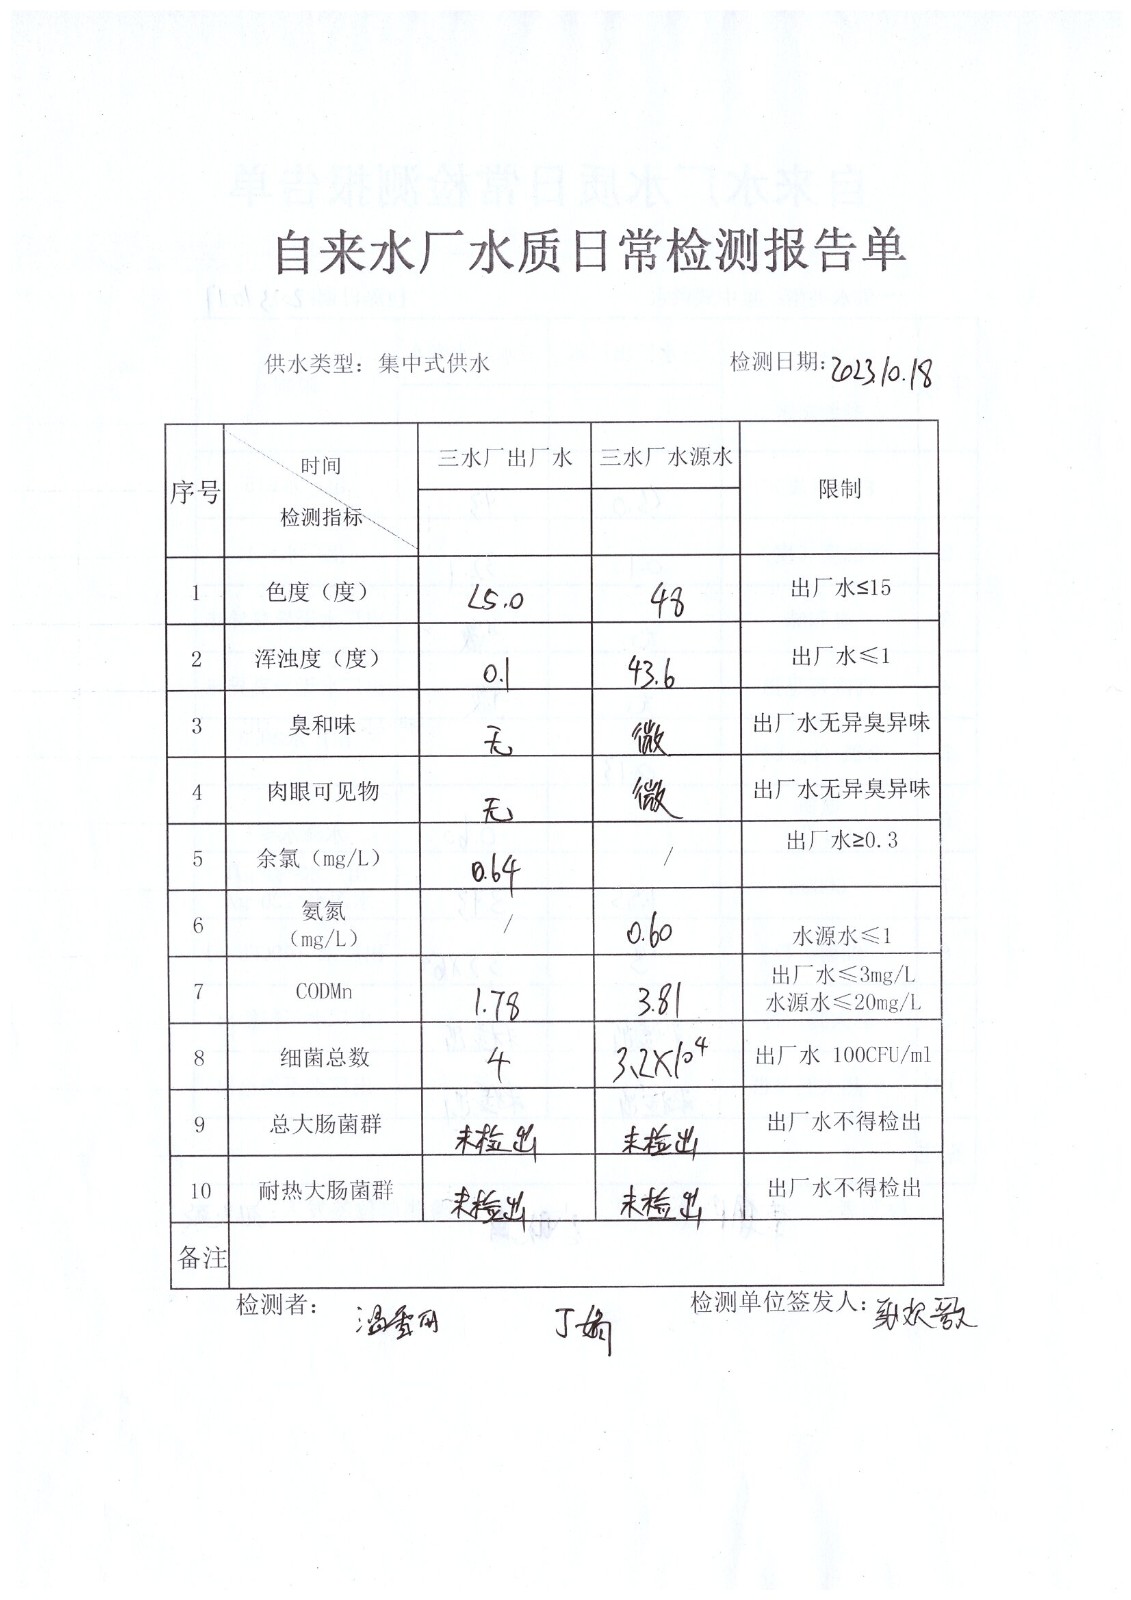 自来水厂水质日常检测报告单
供水类型：集中式供水 检测日期：2023.10.18
序号 时间 检测指标 三水厂出厂水 三水厂水源水 限制
1 色度（度） <5.0 48 出厂水≤15
2 浑浊度（度） 0.1 43.6 出厂水≤1
3 臭和味 无 微 出厂水无异臭异味
4 肉眼可见物 无 微 出厂水无异臭异味
5 余氯（mg/L） 0.64 / 出厂水≥0.3
6 氨氮
（mg/L） / 0.60 水源水≤1
7 CODMn 1.78 3.81 出厂水≤3mg/L
水源水≤20mg/L
8 细菌总数 4 3.2×10⁴ 出厂水 100CFU/ml
9 总大肠菌群 未检出 未检出 出厂水不得检出
10 耐热大肠菌群 未检出 未检出 出厂水不得检出
备注
检测者： 检测单位签发人：